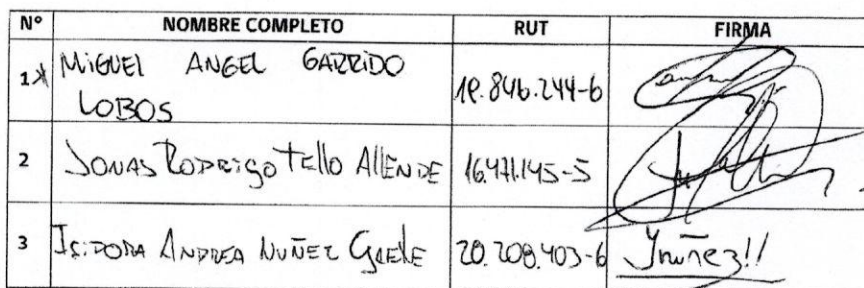 N° NOMBRE COMPLETO RUT FIRMA
1 MIGUEL ANGEL GARRIDO
LOBOS 19.846.244-6
2 JONAS RODRIGO TELLO ALLENDE 16.471.145-5
3 ISIDORA ANDREA NUÑEZ GAETE 20.208.403-6 Inuñez!!